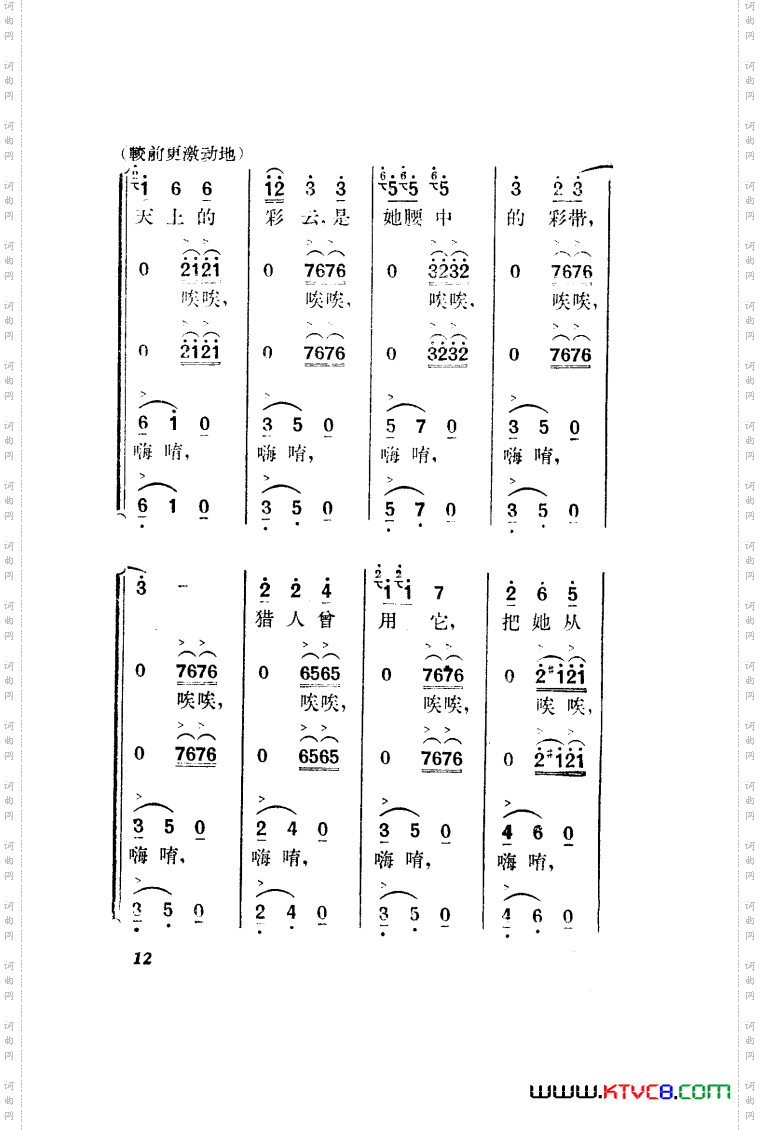 (較前更激动地)
2 i 6 6 | i2 3 3 | 6 5 6 5 6 5 | 3 2 3
天上的 彩云,是 她腰中 的彩带,
0 2121 | 0 7676 | 0 3232 | 0 7676
唉唉, 唉唉, 唉唉, 唉唉,
0 2121 | 0 7676 | 0 3232 | 0 7676
> > > >
6 1 0 | 3 5 0 | 5 7 0 | 3 5 0
嗨唷, 嗨唷, 嗨唷, 嗨唷,
> > > >
6 1 0 | 3 5 0 | 5 7 0 | 3 5 0
3 - | 2 2 4 | 2 1 2 1 7 | 2 6 5
猎人曾 用它, 把她从
0 7676 | 0 6565 | 0 7676 | 0 2#121
唉唉, 唉唉, 唉唉, 唉唉,
0 7676 | 0 6565 | 0 7676 | 0 2#121
> > > >
3 5 0 | 2 4 0 | 3 5 0 | 4 6 0
嗨唷, 嗨唷, 嗨唷, 嗨唷,
> > > >
3 5 0 | 2 4 0 | 3 5 0 | 4 6 0
12
www.KTVC8.com
词曲网